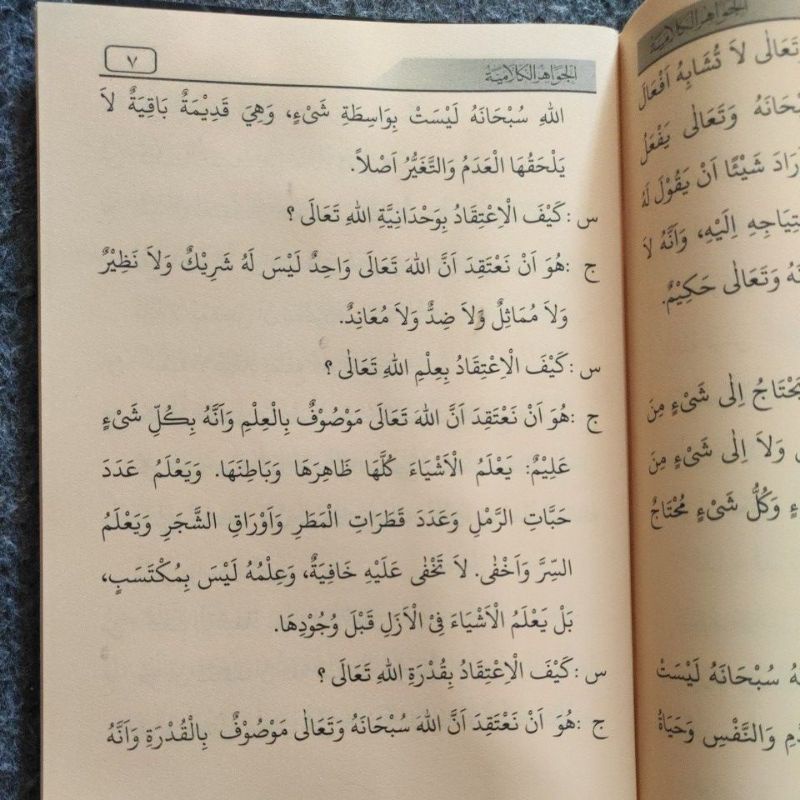 الجواهر الكلامية
٧
اللهِ سُبْحَانَهُ لَيْسَتْ بِوَاسِطَةِ شَىْءٍ، وَهِيَ قَدِيْمَةٌ بَاقِيَةٌ لاَ
يَلْحَقُهَا الْعَدَمُ وَالتَّغَيُّرُ اَصْلاً.
س :كَيْفَ الْاِعْتِقَادُ بِوَحْدَانِيَّةِ اللهِ تَعَالَى ؟
ج :هُوَ اَنْ نَعْتَقِدَ اَنَّ اللهَ تَعَالَى وَاحِدٌ لَيْسَ لَهُ شَرِيْكٌ وَلاَ نَظِيْرٌ
وَلاَ مُمَاثِلٌ وَلاَ ضِدٌّ وَلاَ مُعَانِدٌ.
س :كَيْفَ الْاِعْتِقَادُ بِعِلْمِ اللهِ تَعَالٰى ؟
ج :هُوَ اَنْ نَعْتَقِدَ اَنَّ اللهَ تَعَالٰى مَوْصُوْفٌ بِالْعِلْمِ وَاَنَّهُ بِكُلِّ شَىْءٍ
عَلِيْمٌ: يَعْلَمُ الْاَشْيَاءَ كُلَّهَا ظَاهِرَهَا وَبَاطِنَهَا. وَيَعْلَمُ عَدَدَ
حَبَّاتِ الرَّمْلِ وَعَدَدَ قَطَرَاتِ الْمَطَرِ وَاَوْرَاقِ الشَّجَرِ وَيَعْلَمُ
السِّرَّ وَاَخْفٰى. لاَ تَخْفٰى عَلَيْهِ خَافِيَةٌ، وَعِلْمُهُ لَيْسَ بِمُكْتَسَبٍ،
بَلْ يَعْلَمُ الْاَشْيَاءَ فِىْ الْاَزَلِ قَبْلَ وُجُوْدِهَا.
س :كَيْفَ الْاِعْتِقَادُ بِقُدْرَةِ اللهِ تَعَالَى ؟
ج :هُوَ اَنْ نَعْتَقِدَ اَنَّ اللهَ سُبْحَانَهُ وَتَعَالٰى مَوْصُوْفٌ بِالْقُدْرَةِ وَاَنَّهُ
الجواهر الكلامية
لاَ تُشَابِهُ اَفْعَالَ
وَتَعَالٰى يَفْعَلُ
شَيْئًا اَنْ يَقُوْلَ لَهُ
اِلَيْهِ، وَاَنَّهُ لاَ
وَتَعَالٰى حَكِيْمٌ.
اِلٰى شَىْءٍ مِنَ
وَلاَ اِلٰى شَىْءٍ مِنَ
وَكُلُّ شَىْءٍ مُحْتَاجٌ
سُبْحَانَهُ لَيْسَتْ
وَالنَّفْسِ وَحَيَاةُ